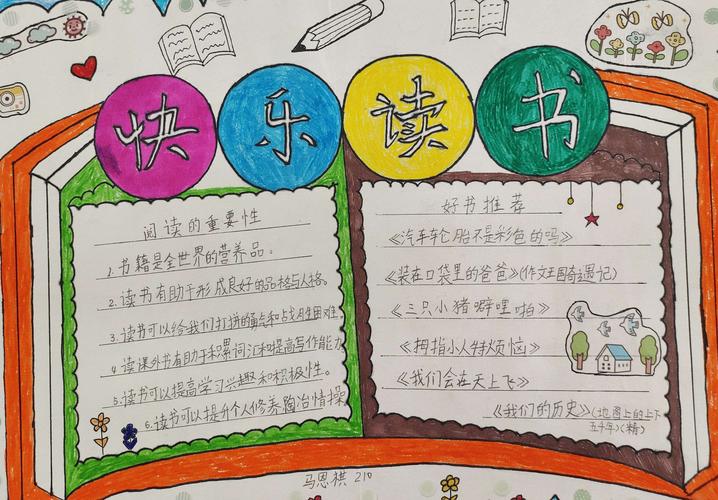 快乐读书
阅读的重要性
1.书籍是全世界的营养品。
2.读书有助于形成良好的品格与人格。
3.读书可以给我们打拼的和战胜困难
4.读课外书有助于积累词汇和提高写作能力
5.读书可以提高学习兴趣和积极性。
6.读书可以提升个人修养陶冶情操
好书推荐
《汽车轮胎不是彩色的吗》
《装在口袋里的爸爸》(作文王国奇遇记)
《三只小猪噼哩啪》
《拇指小人特烦恼》
《我们会在天上飞》
《我们的历史》(地图上的上下
五千年)(精)
马恩祺 210